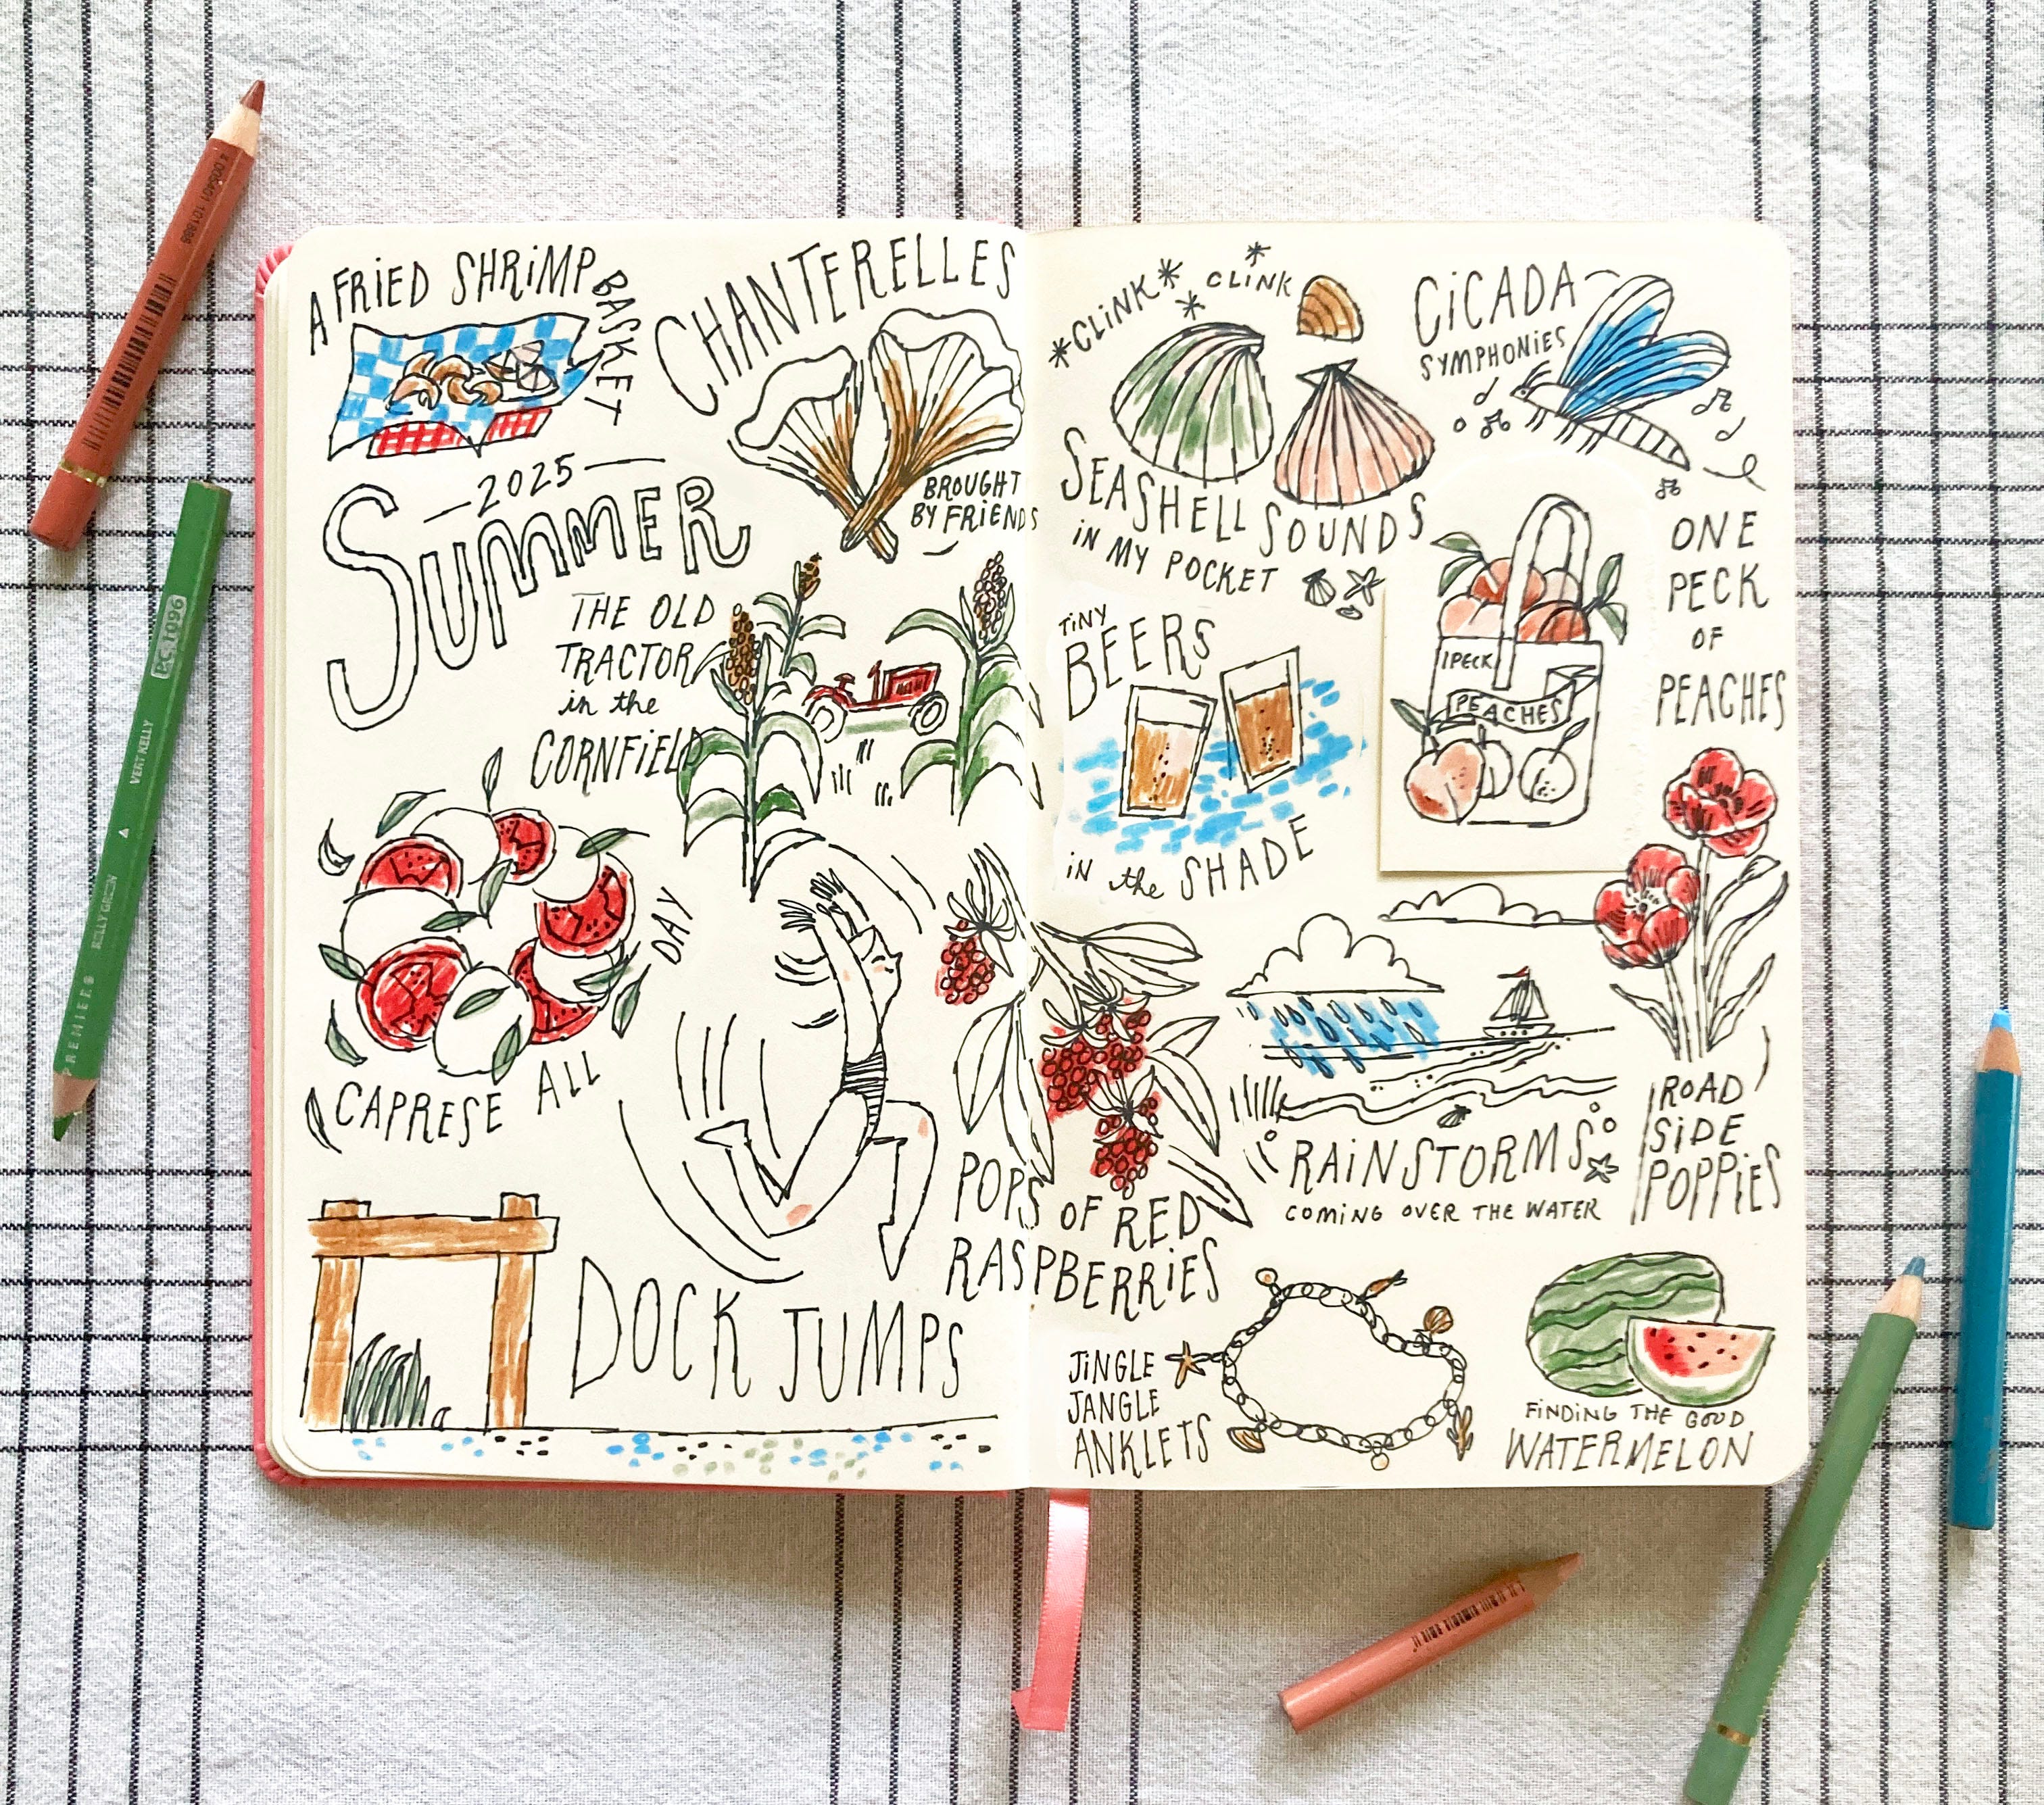 A FRiED SHRiMP
BASKET
CHANTERELLES
BROUGHT
BY FRiENDS
2025
SUMMER
THE OLD
TRACTOR
in the
CORNFiELD
CAPRESE ALL DAY
DOCK JUMPS
POPS OF RED
RASPBERRiES
*CLiNK* *CLiNK*
SEASHELL SOUNDS
iN MY POCKET
CiCADA
SYMPHONiES
TiNY
BEERS
iN the SHADE
1 PECK
PEACHES
ONE
PECK
OF
PEACHES
RAiNSTORMS
COMiNG OVER THE WATER
ROAD
SiDE
POPPiES
JiNGLE
JANGLE
ANKLETS
FiNDiNG THE GOOD
WATERMELON
PREMIER
KELLY GREEN
VERT KELLY
PC 1096